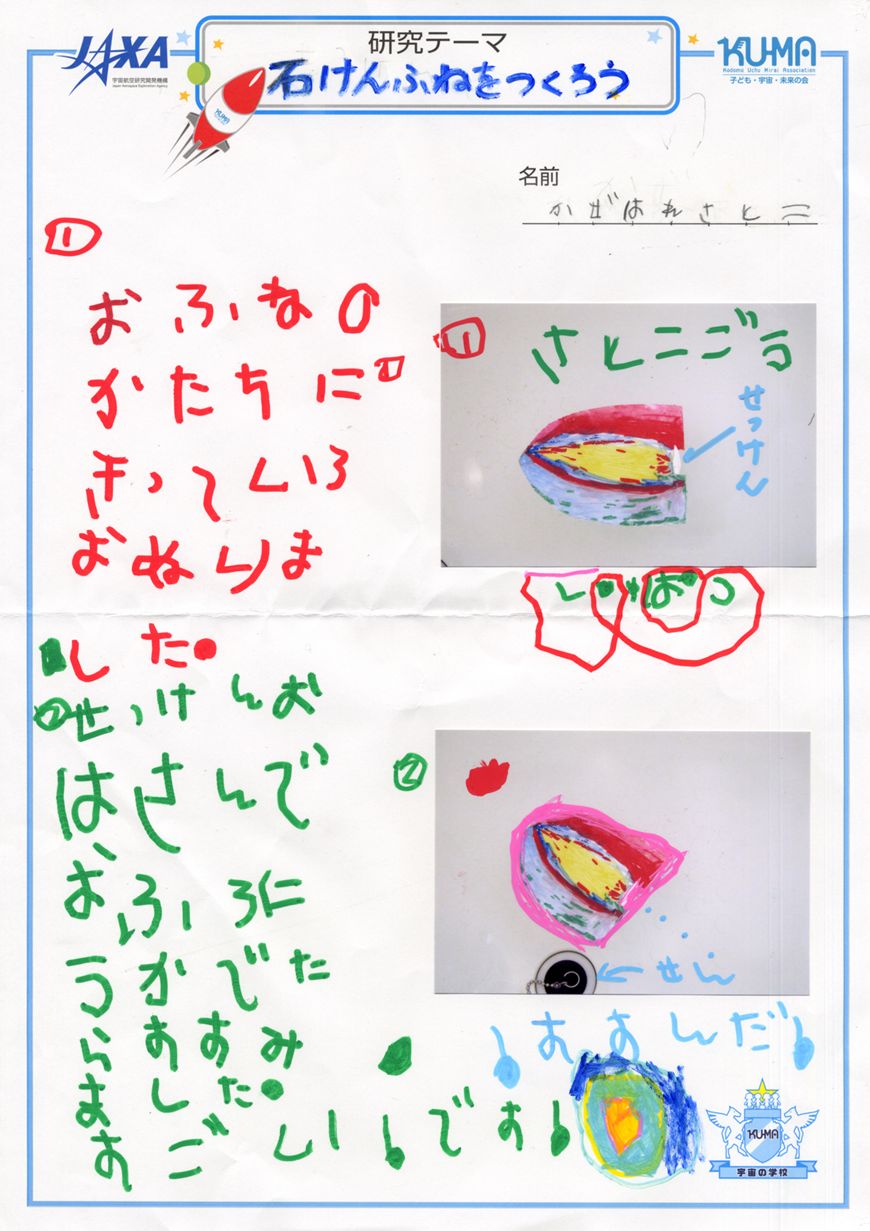 JAXA
宇宙航空研究開発機構
Japan Aerospace Exploration Agency
研究テーマ
石けんふねをつくろう
KU-MA
Kodomo Uchu Mirai Association
子ども・宇宙・未来の会
KUMA
名前
かぜはれさとこ
①
おふねの
かたちに
きっていろ
おぬりま
した●
①
さとこごう
せっけん
しゅぱつ
②せっけんお
はさんで
おふろに
うかでた
らすすみ
ました●
すごい!です!
②
せん
!すすんだ!
KUMA
宇宙の学校